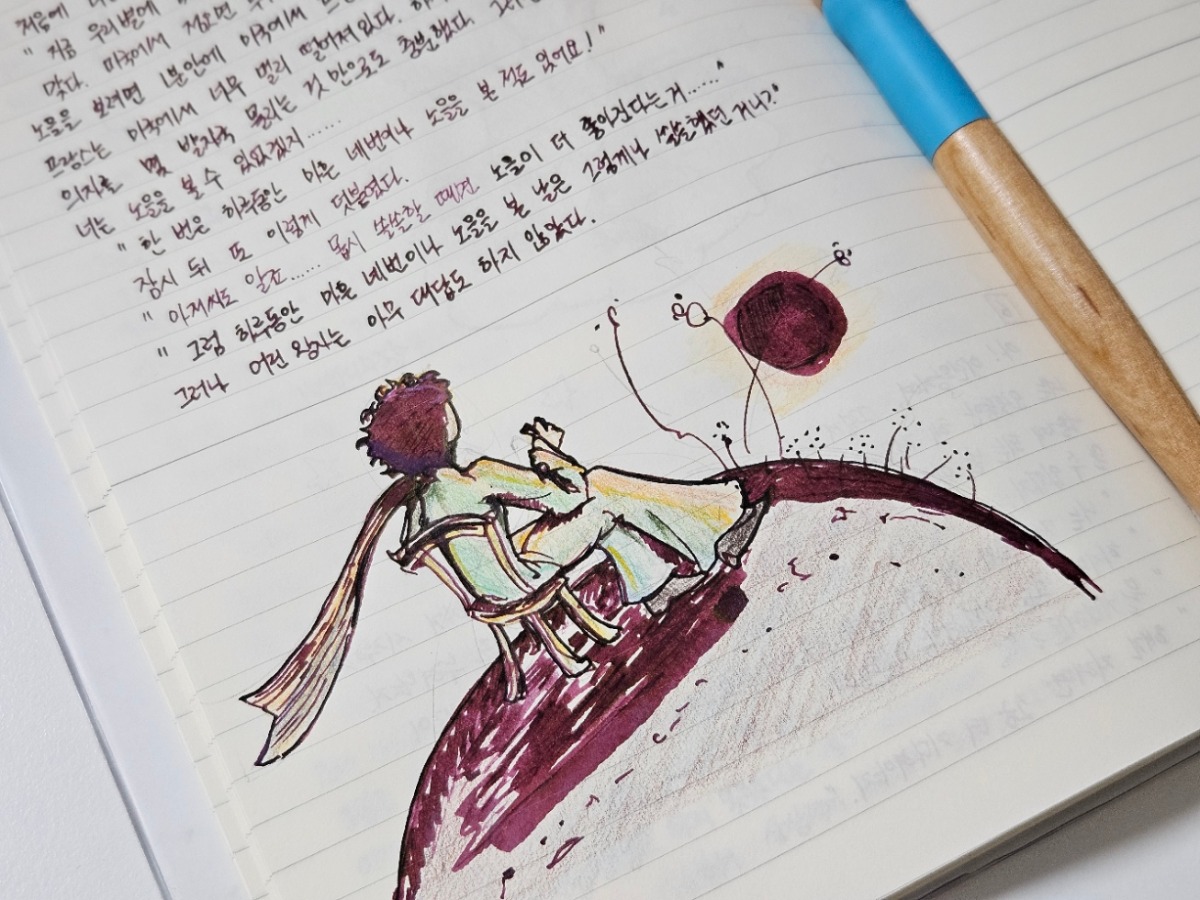 " 지금 우리별에
맞다. 미국에서 정오면
노을을 보려면 1분안에 이곳에서
프랑스는 미국에서 너무 멀리 떨어져있다.
의자를 몇 발자국 물리는 것 만으로도 충분했다.
너는 노을을 볼수 있었겠지......
" 한 번은 하루동안 마흔 네번이나 노을을 본 적도 있어요! "
잠시 뒤 또 이렇게 덧붙였다.
" 아저씨도 알죠...... 몹시 쓸쓸할 때면 노을이 더 좋아진다는거...... "
" 그럼 하루동안 마흔 네번이나 노을을 본 날은 그렇게나 쓸쓸했던 거니? "
그러나 어린 왕자는 아무 대답도 하지 않았다.